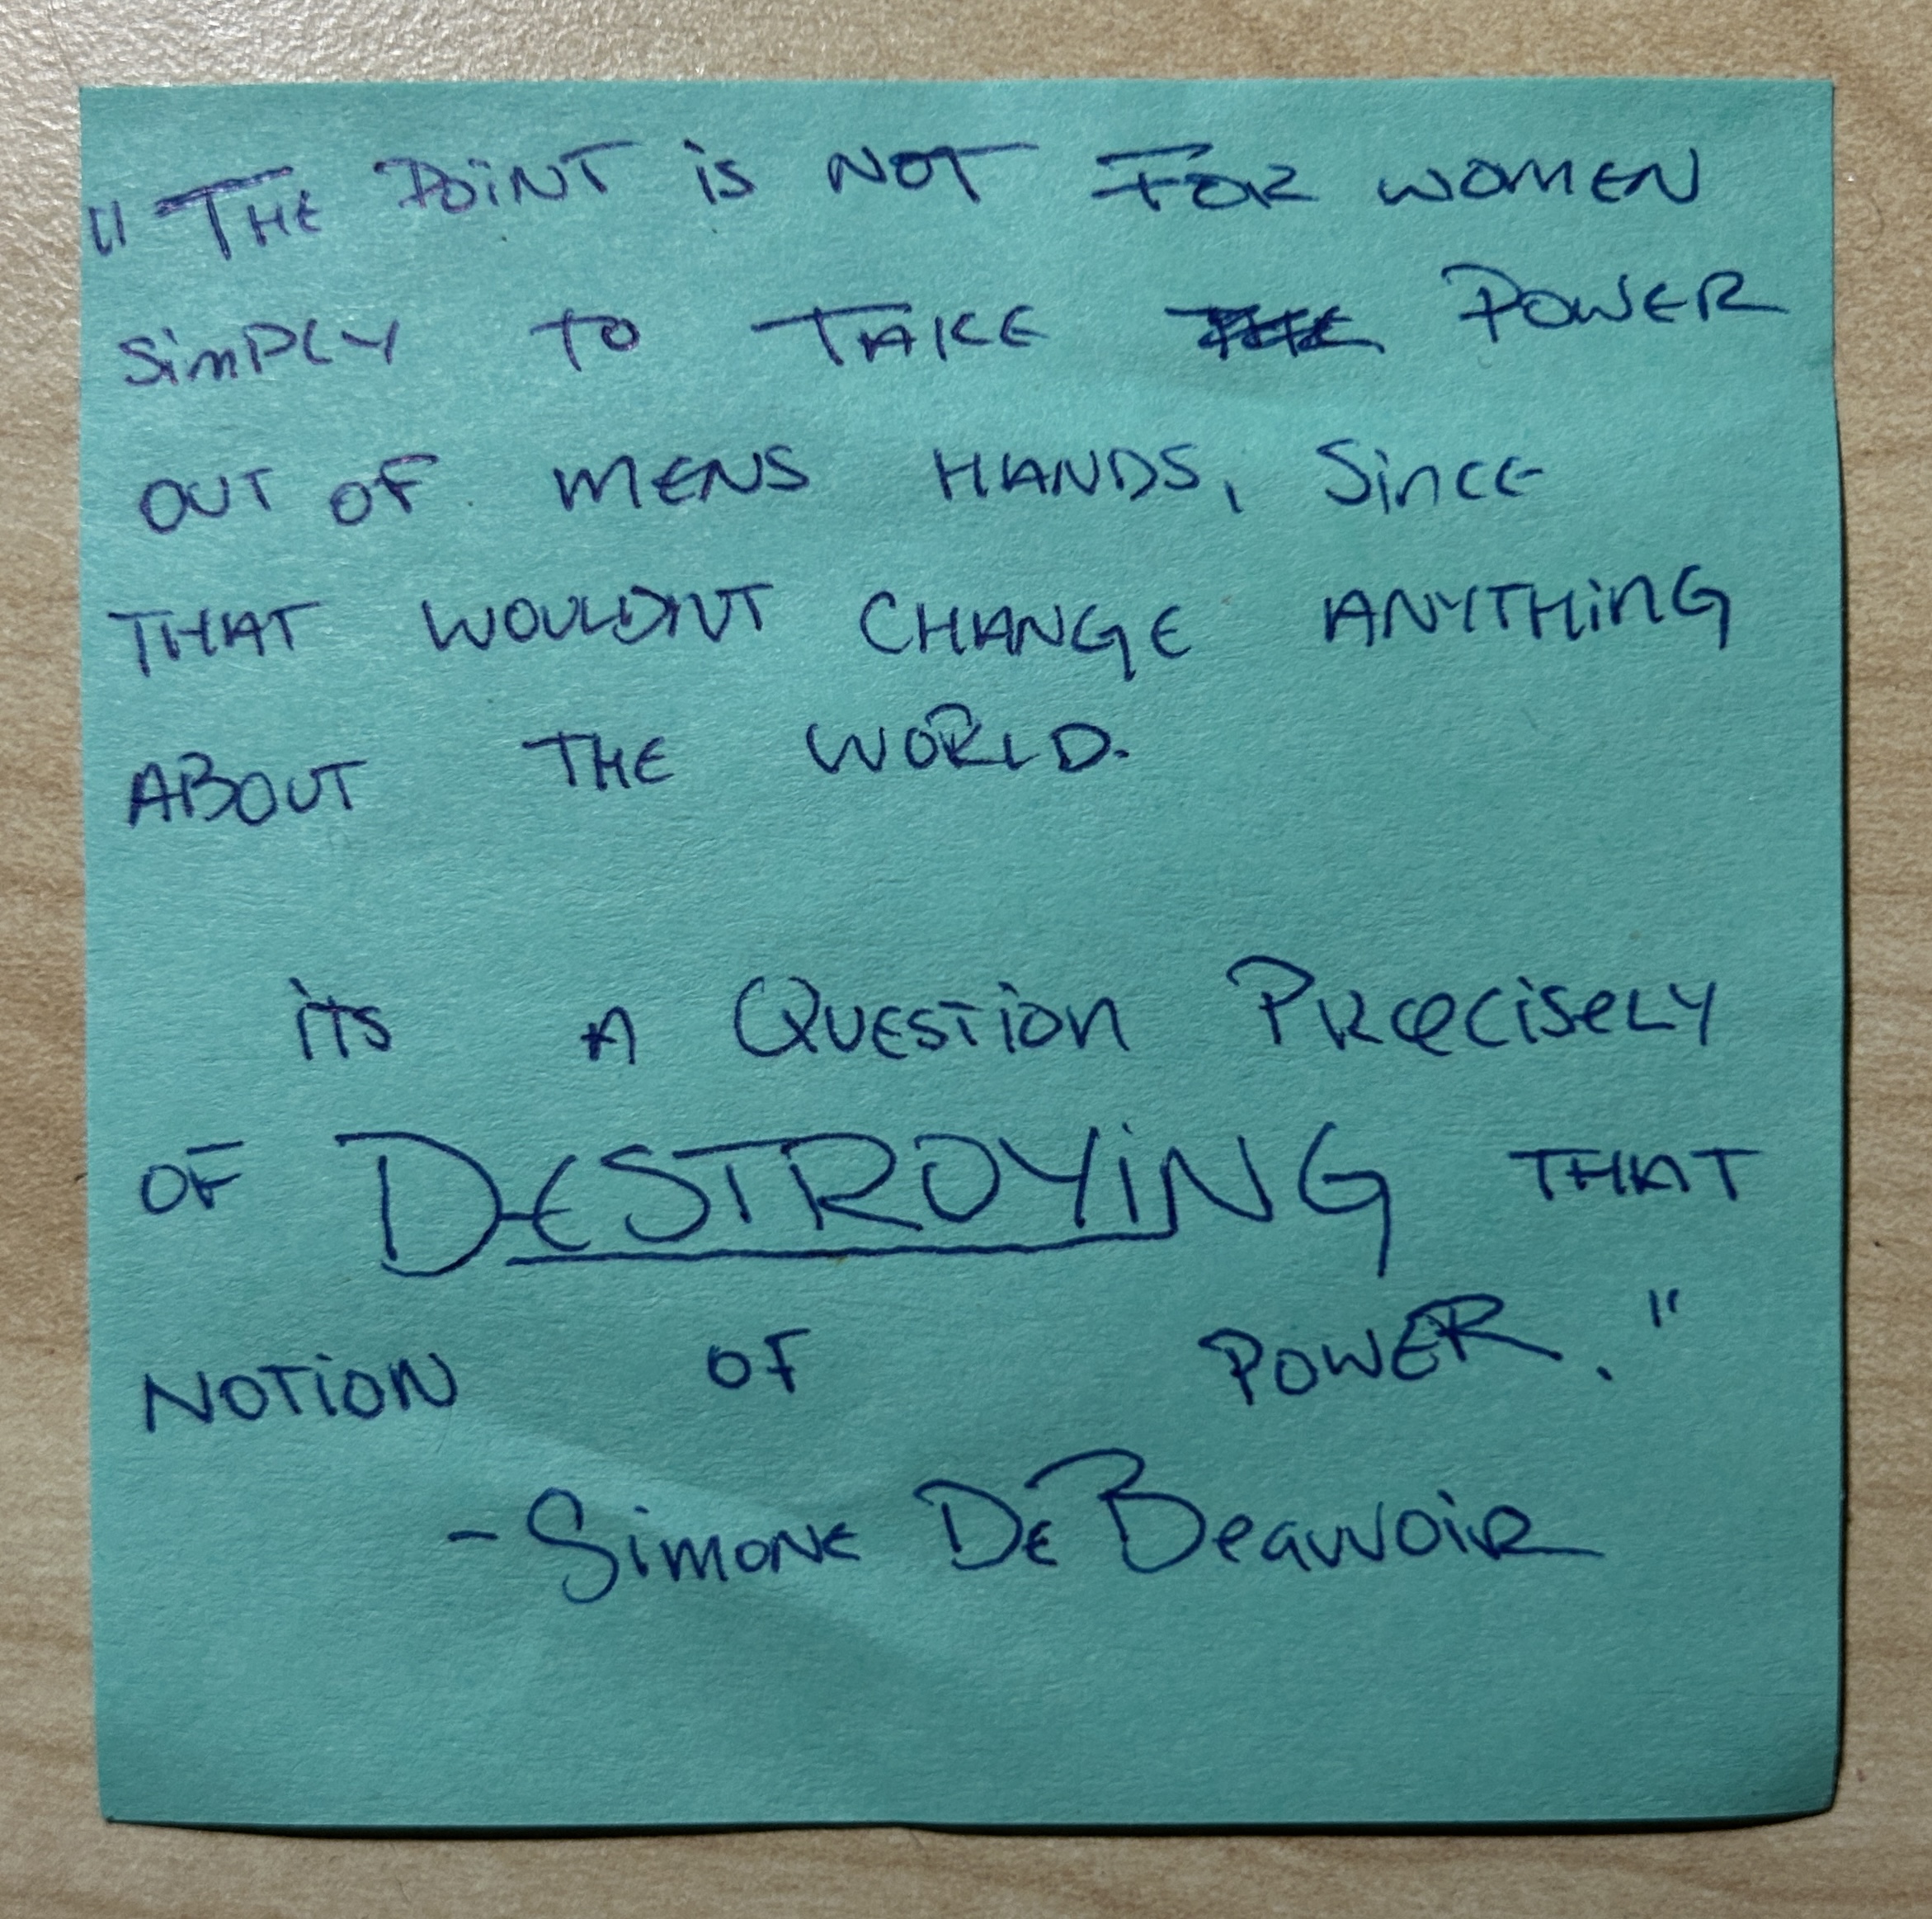 "THE POiNT is NOT FOR WOMEN
SimPLY TO TAKE POWER
OUT OF MENS HANDS, Since
THAT WOULDNT CHANGE ANYTHiNG
ABOUT THE WORLD.
iTs A QUESTiON PReciseLY
OF DESTROYiNG THAT
NOTiON OF POWER."
- Simone De Beauvoir